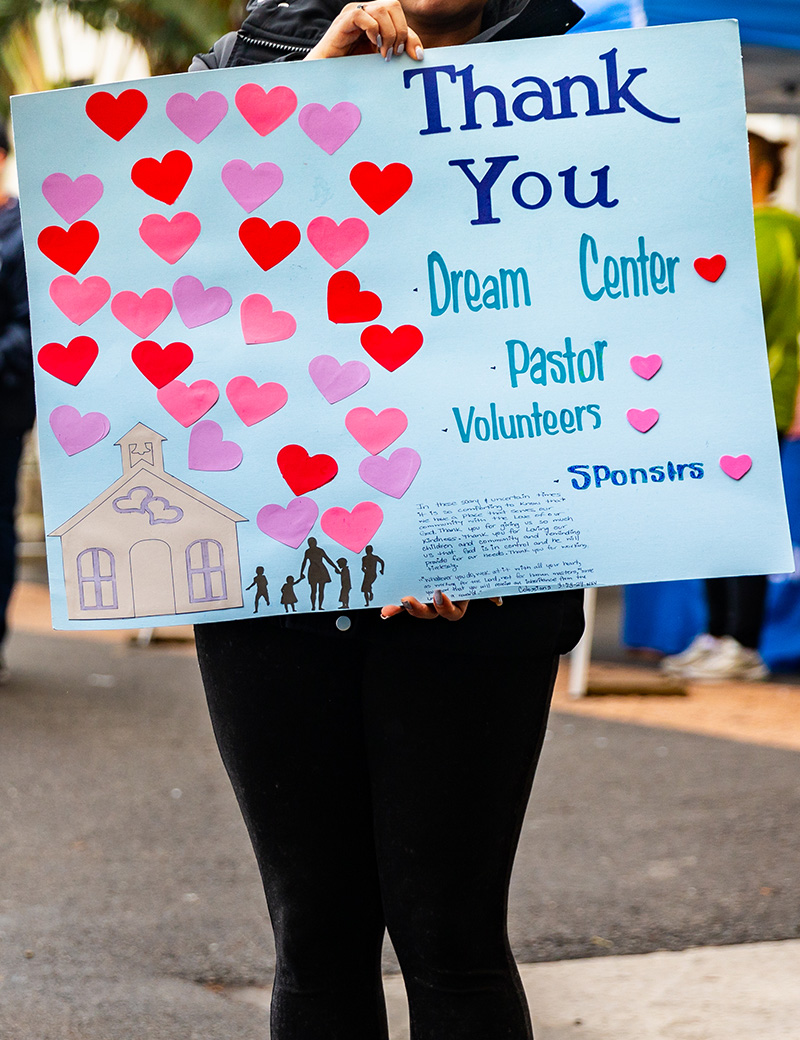 Thank
You
Dream Center
Pastor
Volunteers
Sponsers
In these scary & uncertain times
it is so comforting to know that
we have a place that serves our
community with the love of our
God. Thank you for giving us so much
kindness. Thank you for Loving our
children and community and reminding
us that God is in control and he will
provide for our needs. Thank you for working
tirelessly.
"Whatever you do, work at it with all your heart,
as working for the Lord, not for human masters, since
you know that you will receive an inheritance from the
Lord as a reward." Colossians 3:23-24 NIV